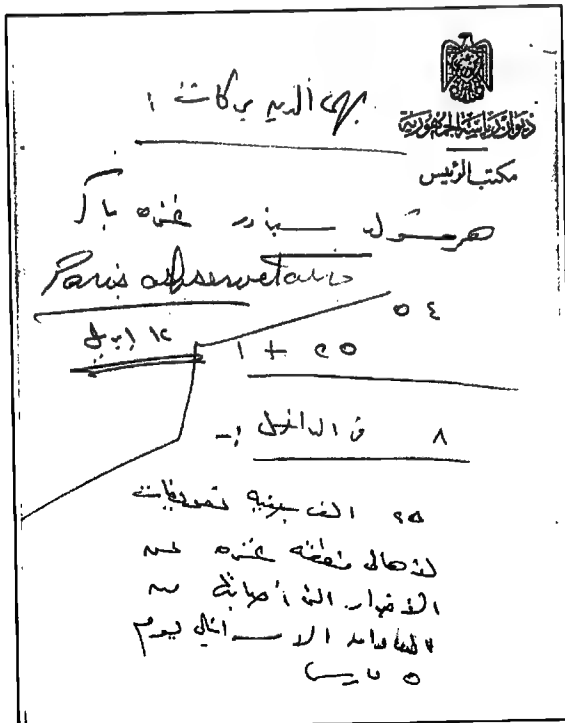 ديوان رياسة الجمهورية
مكتب الرئيس
بهى الدين بركات :
همرشولد سيزور غزه باكر
Paris observetaire
٥٤
١٢ ابريل
١ + ٢٥
٨ فى الداخل :-
٢٥ الف جنيه تعويضات
لأهالى منطقة غزه عن
الأضرار التى أصابتهم من
العدوان الاسرائيلى يوم
٥ مارس